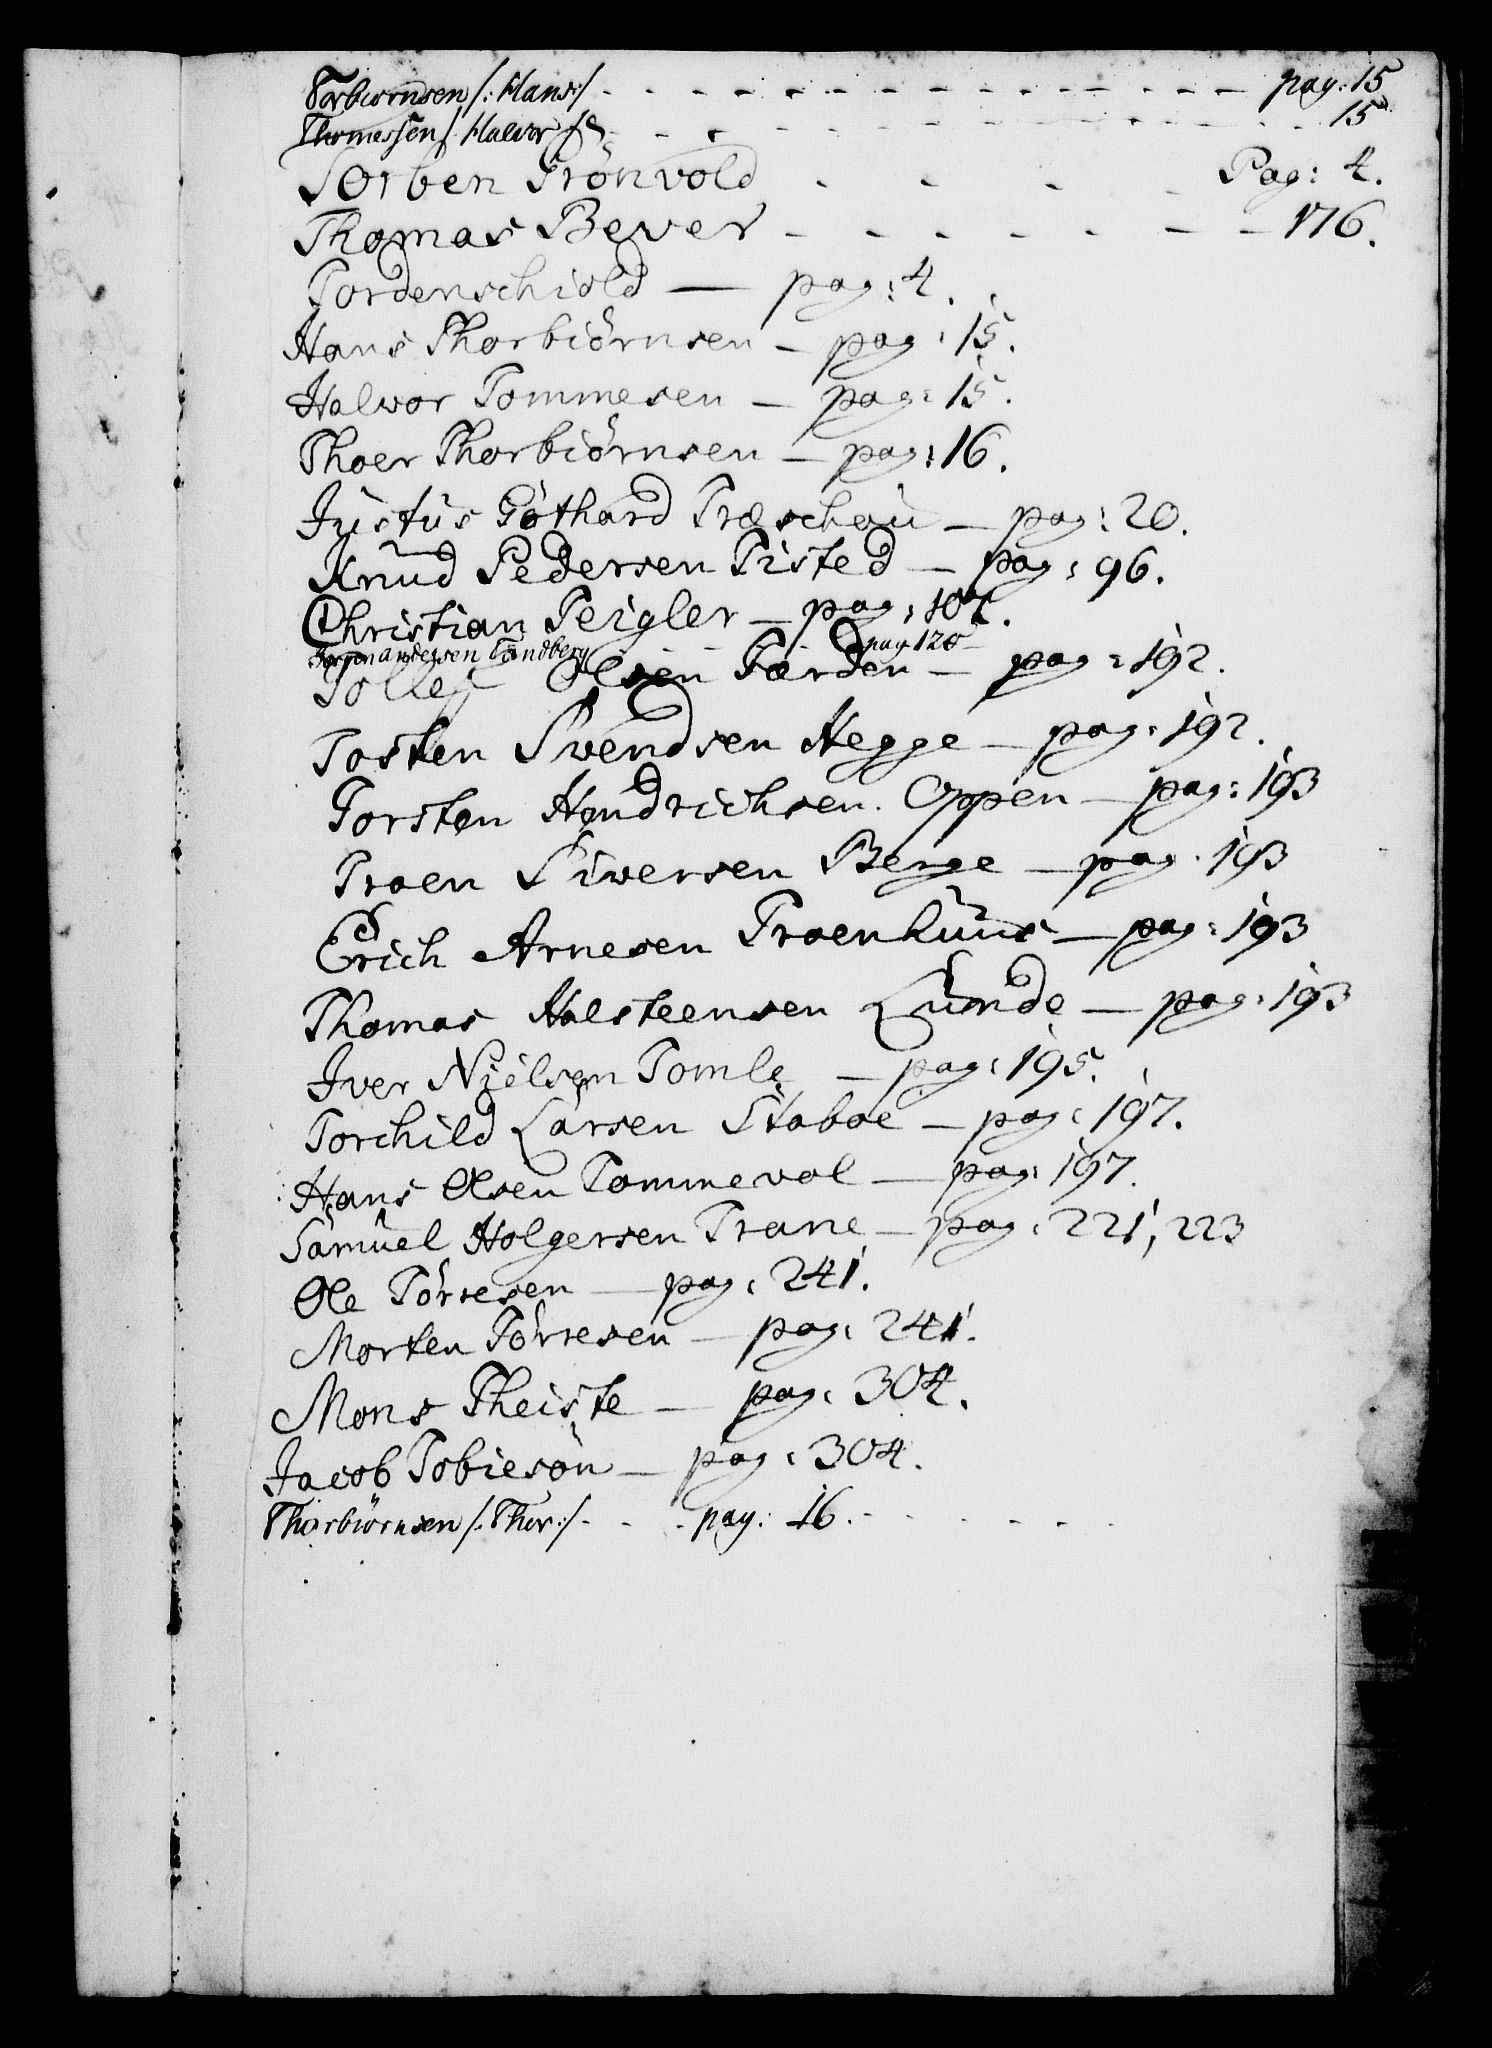 Torbiørnsen /: Hans :/ - - - - - - - - - - - - - pag: 15
Thomessen /: Halvor :/ - - - - - - - - - - - - 15
Torben Grönvold - - - - Pag: 4.
Thomas Bever - - - - - - - 176.
Tordenschiold — pag: 4.
Hans Thorbiörnsen — pag: 15.
Halvor Tommesen — pag: 15.
Thoer Thorbiörnsen — pag: 16.
Justus Göthard Træschau — pag: 20.
Knud Pedersen Tisted — pag: 96.
Christian Teigler — pag: 107.
Jørgen andersen Tandberg pag 120
Tollef Olsen Færden — pag: 192.
Tosten Svendsen Hegge — pag: 192.
Torsten Hendrichsen Oppen — pag: 193
Troen Siversen Berge — pag: 193
Erich Arnesen Troenhuus — pag: 193
Thomas Halsteensen Lunde — pag: 193
Iver Nielsen Tomle — pag: 195.
Torchild Larsen Staboe — pag: 197.
Hans Olsen Tommevol — pag: 197.
Samuel Holgersen Trane — pag: 221, 223
Ole Törresen — pag: 241.
Morten Törresen — pag: 241.
Mons Theiste — pag: 304.
Jacob Tobieson — pag: 304.
Thorbiörnsen /: Thor :/ - - - pag: 16. - - - - - -